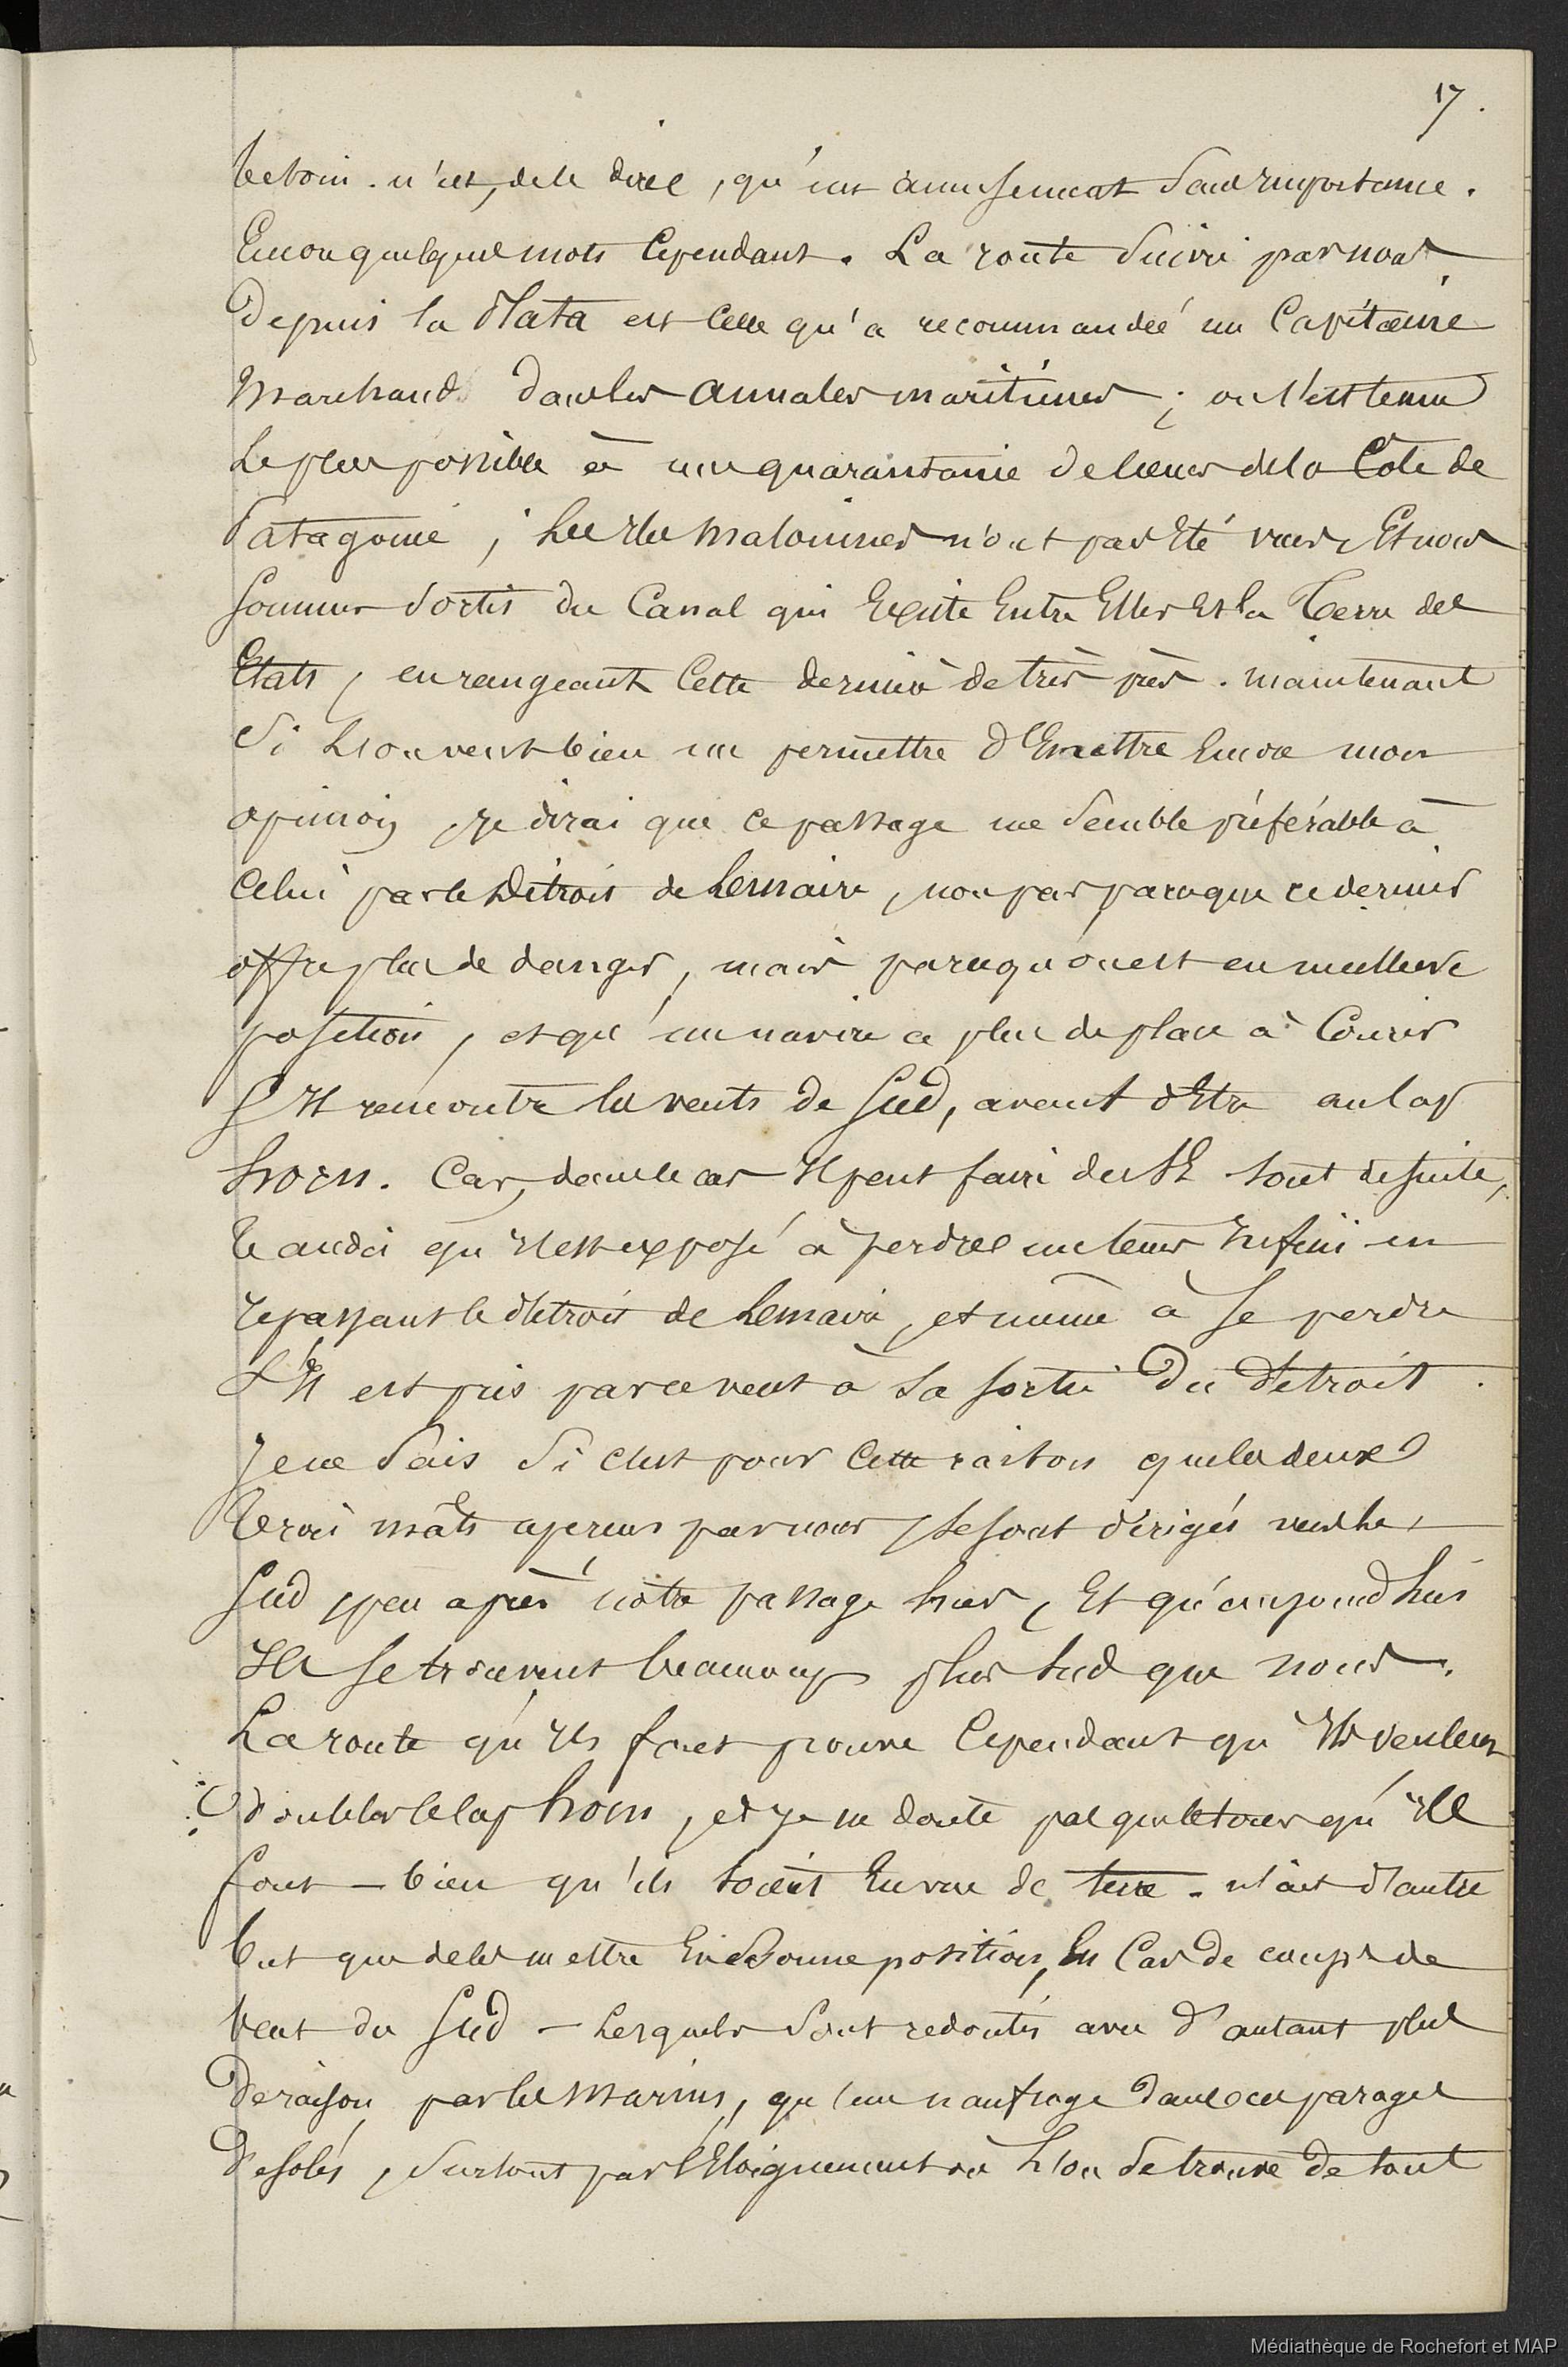 17.
besoin. n'est, de le dire, qu'un amusement sans importance.
Encore quelques mots Cependant. La route suivie par nous
Depuis la Plata est Celle qu'a recommandée un Capitaine
Marchand dans les annales maritimes ; on s'est tenu
Le plus possible à une quarantaine de lieues de la Côte de
Patagonie ; Les Iles Malouines n'ont pas Eté vues, Et nous
sommes sortis du Canal qui Existe Entre Elles Et la Terre des
Etats, en rangeant Cette dernière de très près. maintenant
Si L'on veut bien me permettre d'Emettre Encore mon
opinion, je dirai que ce passage me semble préférable à
Celui par le Détroit de Lemaire, non pas parceque ce dernier
offre plus de danger, mais parcequ'on est en meilleure
position, et qu'un navire a plus de place à Courir
S'Il rencontre les vents de Sud, avant d'Etre au Cap
horn. Car, dans le cas Il peut faire de l'E tout de suite,
tandis qu'Il est exposé à perdre un temps Infini en
repassant le détroit de Lemaire, et même à se perdre
S'Il est pris par ce vent à sa sortie Du détroit.
Je ne sais si c'est pour Cette raison que les deux
trois mâts aperçus par nous, se sont dirigés vers le
Sud, peu après notre passage hier, Et qu'aujourd'hui
Ils se trouvent beaucoup plus Sud que nous.
La route qu'Ils font prouve Cependant qu'Ils veulent
doubler le Cap horn, et je ne doute pas que le tour qu'Ils
font — bien qu'ils soient En vue de terre - n'ait d'autre
but que de les mettre En Bonne position, En Cas de coups de
vent du Sud — Lesquels sont redoutés avec d'autant plus
de raison par les Marins, qu'un naufrage dans ces parages
désolés, surtout par l'Eloignement où L'on se trouve de tout
Médiathèque de Rochefort et MAP